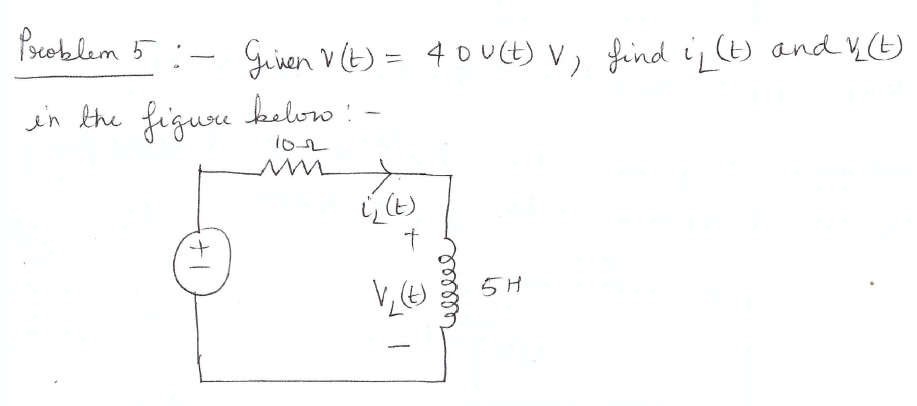 Problem 5 :- Given V(t) = 40U(t) V, find i_L(t) and V_L(t)
in the figure below :-
10Ω
i_L(t)
+
+
V_L(t)
5H
-
-